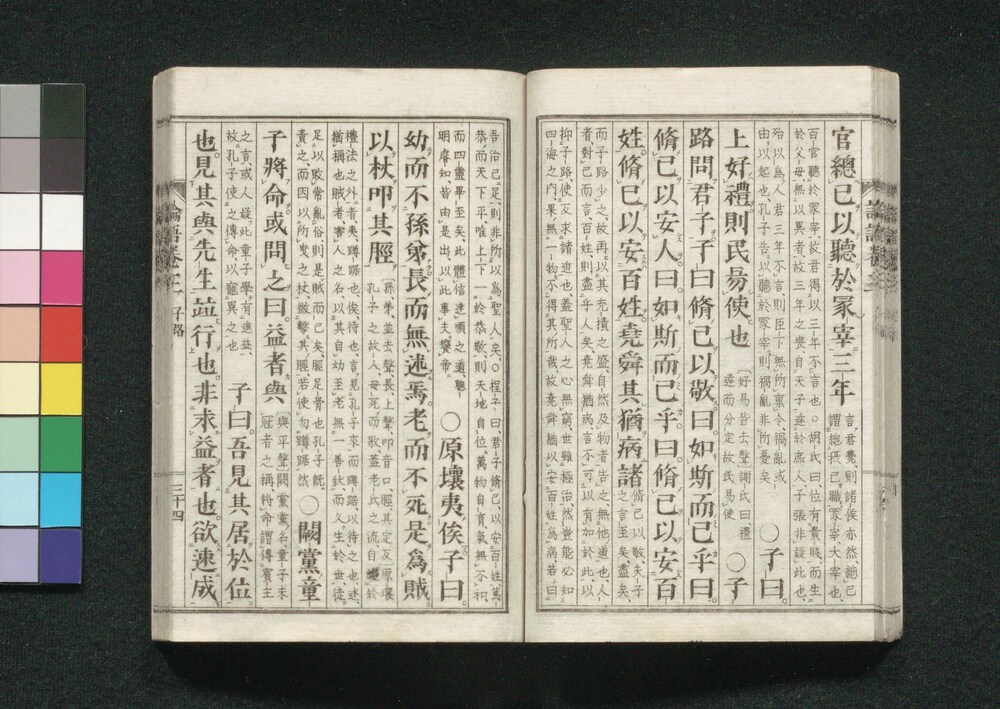 官總己以聽於冢宰三年 言君薨則諸侯亦然總己謂總攝己職冢宰大宰也
百官聽於冢宰故君得以三年不言也○胡氏曰位有貴賤而生於父母無以異者故三年之喪自天子達於庶人子張非疑此也
殆以爲人君三年不言則臣下無所禀令禍亂或由以起也孔子告以聽於冢宰則禍亂非所憂矣 ○子曰
上好禮則民昜使也 好昜皆去聲謝氏曰禮達而分定故民昜使 ○子
路問君子子曰脩己以敬曰如斯而已乎曰
脩己以安人曰如斯而已乎曰脩己以安百
姓脩己以安百姓堯舜其猶病諸 脩己以敬夫子之言至矣盡矣
而子路少之故再以其充積之盛自然及物者告之無他道也人者對己而言百姓則盡乎人矣堯舜猶病言不可以有加於此以
抑子路使反求諸近也蓋聖人之心無窮世雖極治然豈能必知四海之内果無一物不得其所哉故堯舜猶以安百姓爲病若曰
吾治己足則非所以爲聖人矣○程子曰君子脩己以安百姓篤恭而天下平唯上下一於恭敬則天地自位萬物自育氣無不和
而四靈畢至矣此體信達順之道聰明睿知皆由是出以此事天饗帝 ○原壤夷俟子曰
幼而不孫弟長而無述焉老而不死是爲賊
以杖叩其脛 孫弟並去聲長上聲叩音口脛其定反原壤孔子之故人母死而歌蓋老氏之流自放於
禮法之外者夷蹲踞也俟待也言見孔子來而蹲踞以待之也述猶稱也賊者害人之名以其自幼至老無一善狀而久生於世徒
足以敗常亂俗則是賊而已矣脛足骨也孔子既責之而因以所曳之杖微擊其脛若使勿蹲踞然 ○闕黨童
子將命或問之曰益者與 與平聲闕黨黨名童子未冠者之稱將命謂傳賓主
之言或人疑此童子學有進益故孔子使之傳命以寵異之也 子曰吾見其居於位
也見其與先生竝行也非求益者也欲速成
子路
三十四